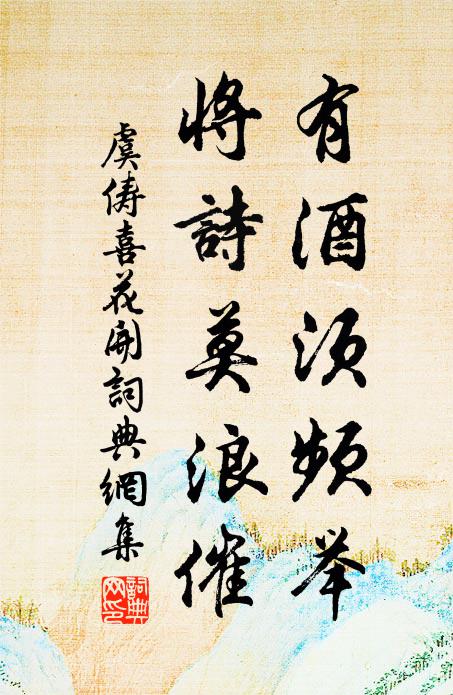 有酒须频举
将詩莫浪催
虞儔喜花開詞典網集
詞典网印